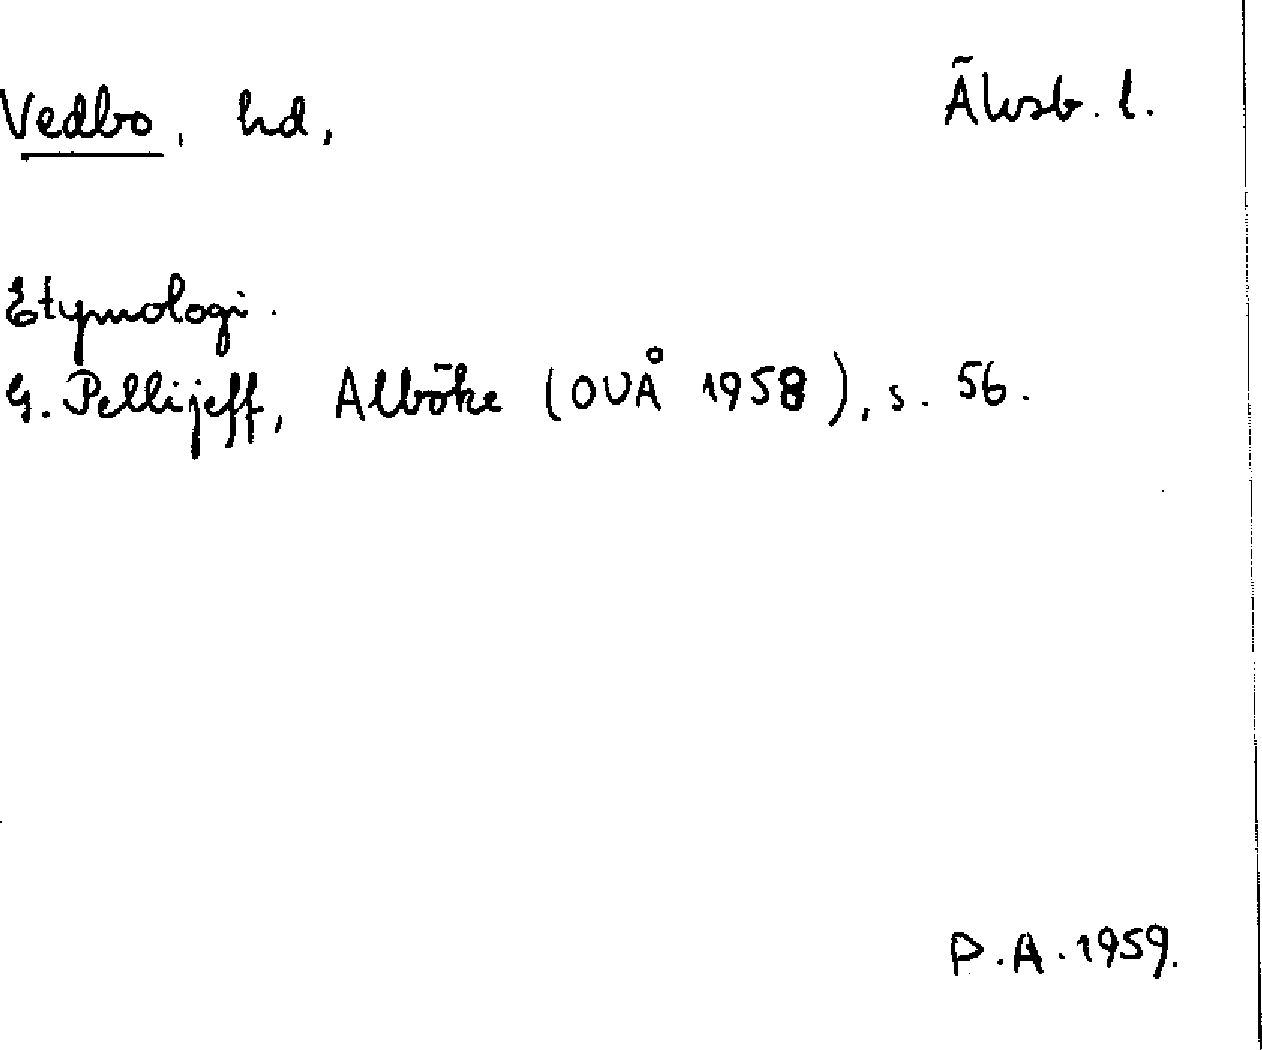 Vedbo, hd, Älvsb. l.
Etymologi.
G. Pellijeff, Alböke (OUÅ 1958), s. 56.
P.A. 1959.